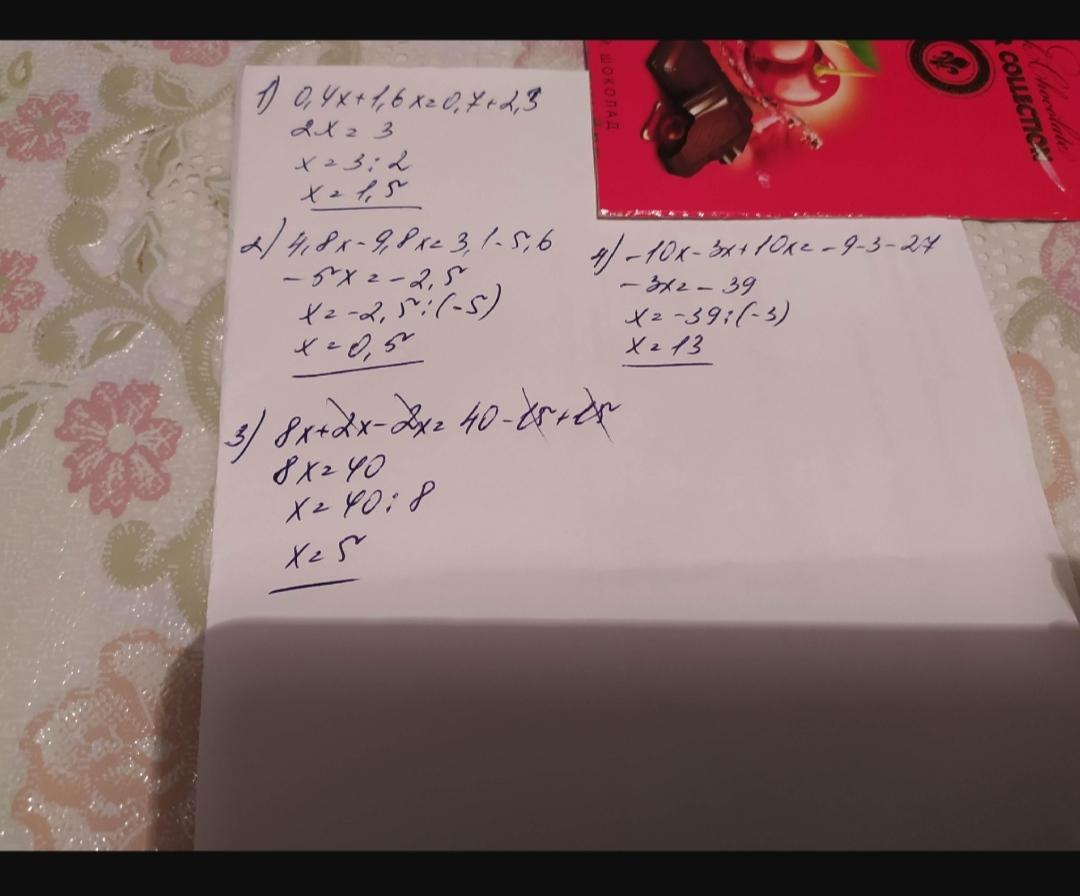 1) 0,4x+1,6x=0,7+2,3
2x=3
x=3:2
x=1,5
2) 4,8x-9,8x=3,1-5,6
-5x=-2,5
x=-2,5:(-5)
x=0,5
4) -10x-3x+10x=-9-3-27
-3x=-39
x=-39:(-3)
x=13
3) 8x+2x-2x=40-15+15
8x=40
x=40:8
x=5
ШОКОЛАД
Chocolate
COLLECTION